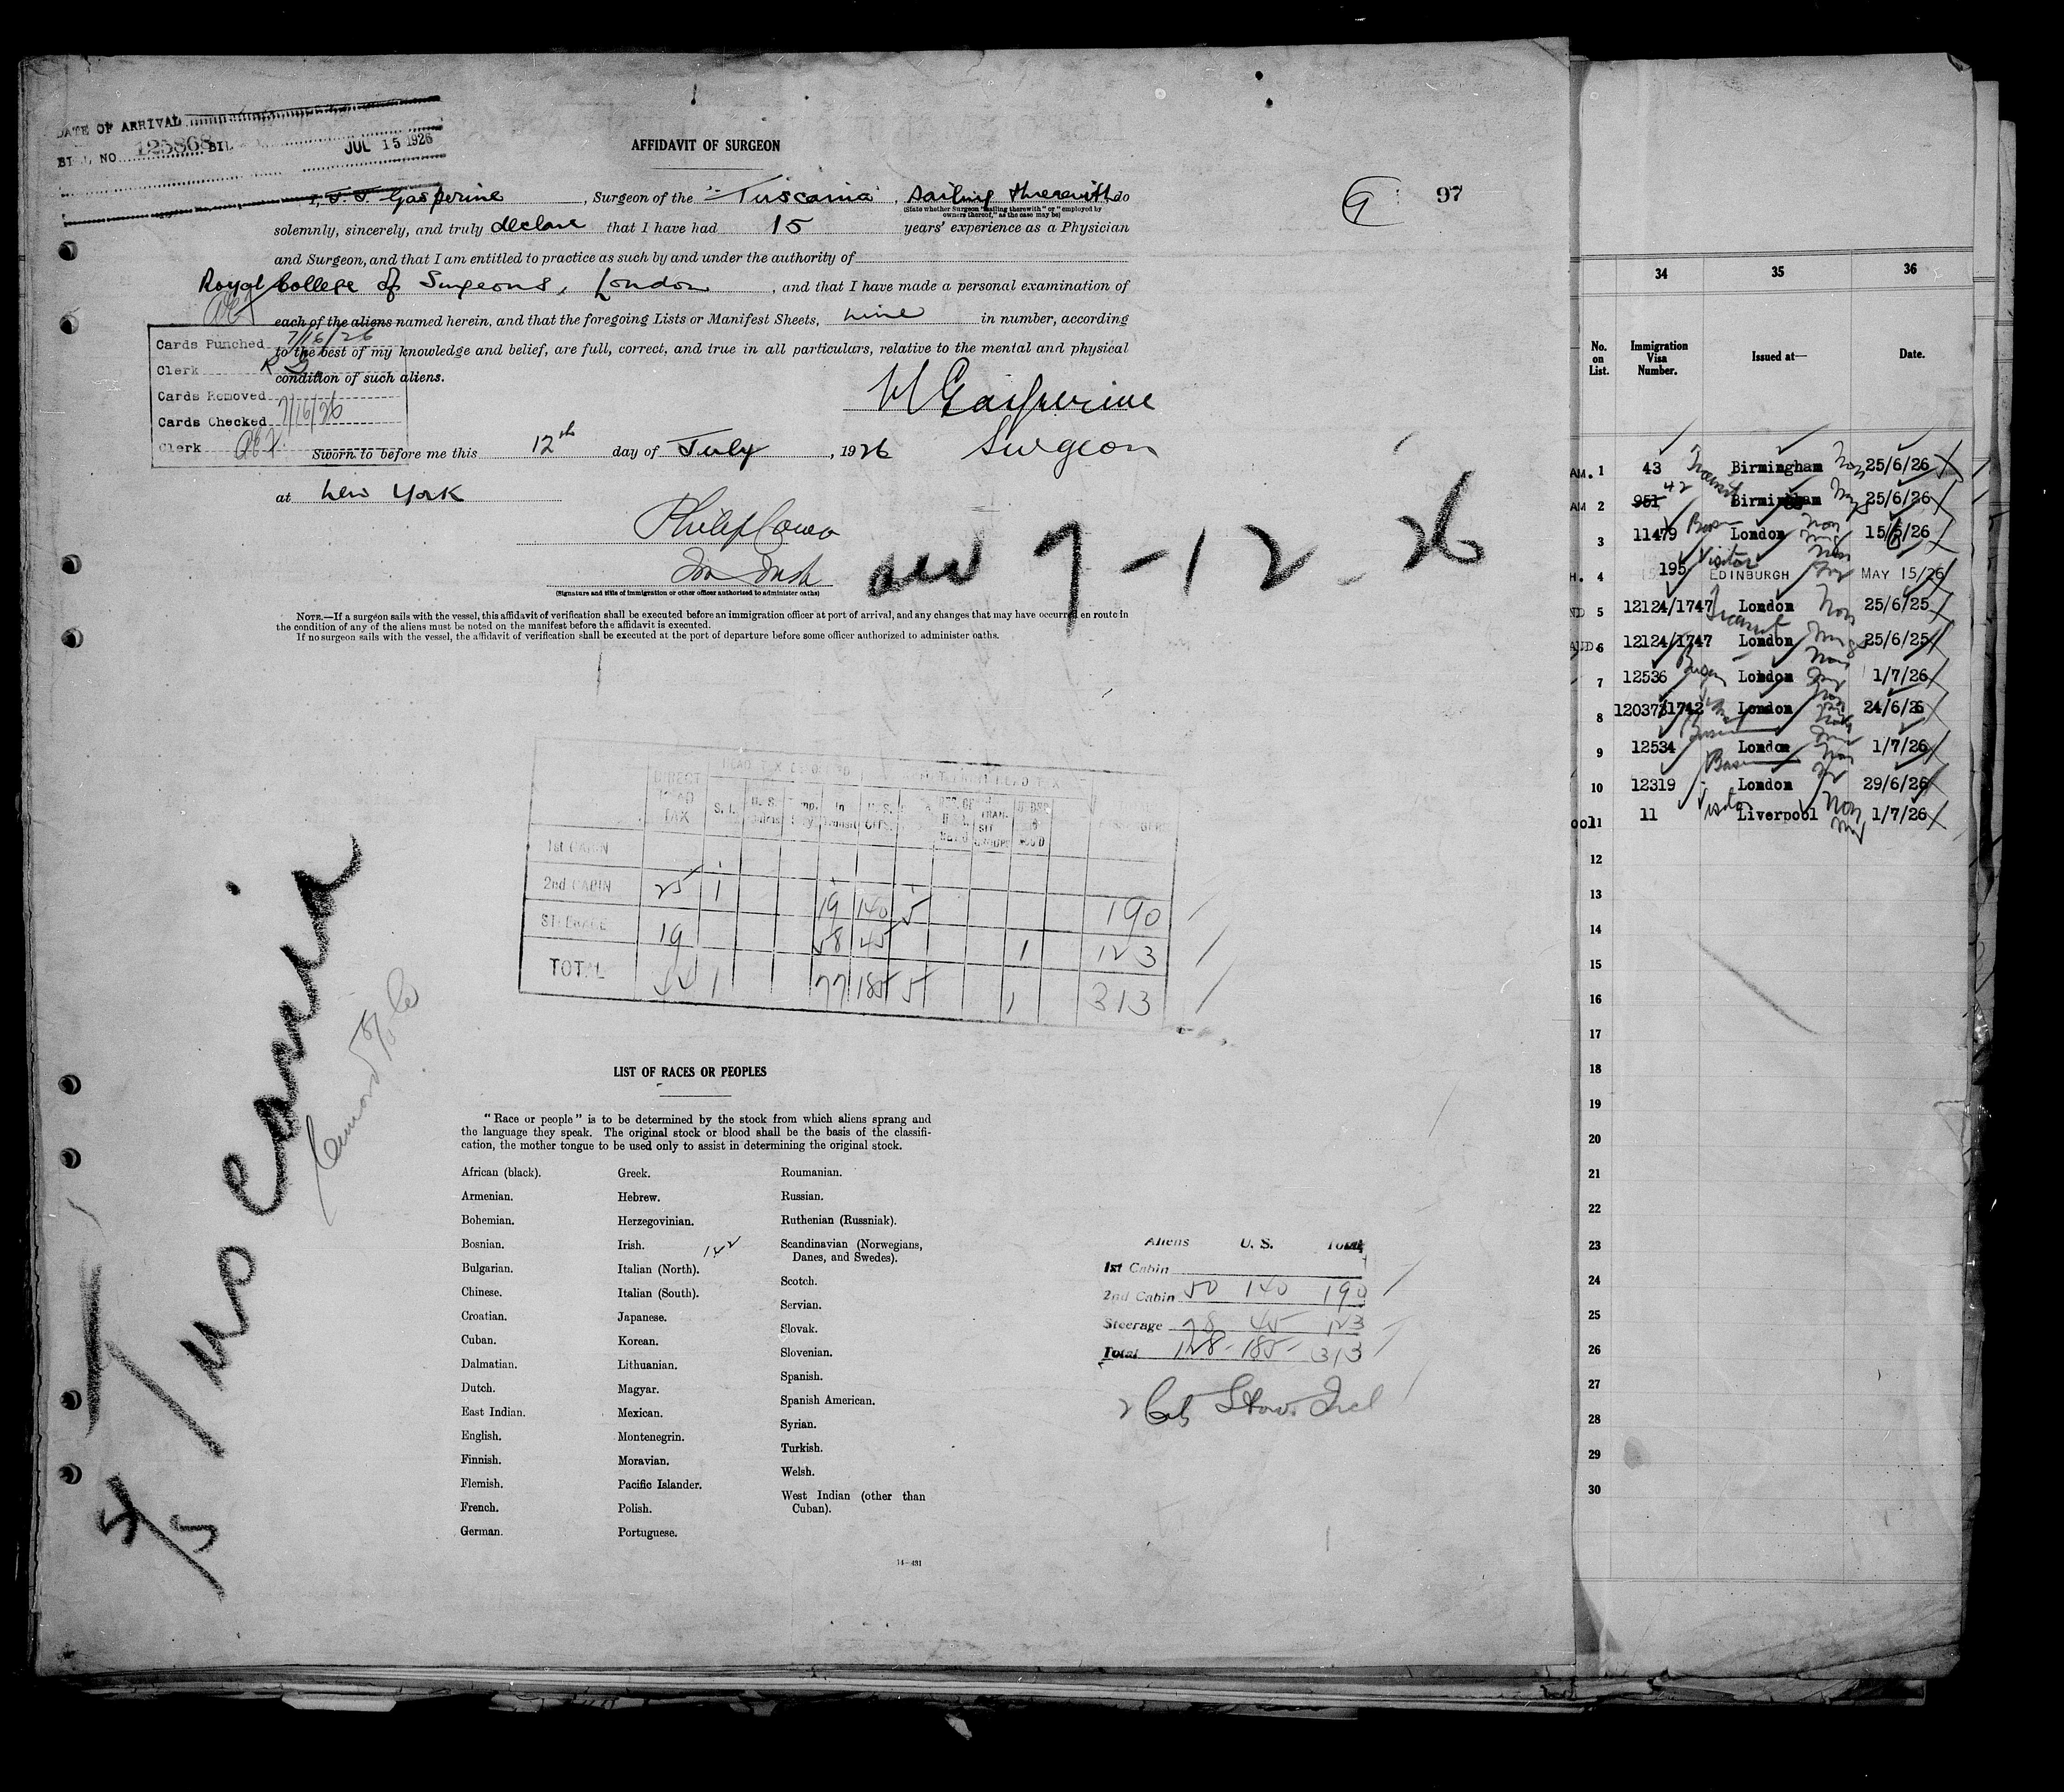 DATE OF ARRIVAL
BILL NO. 125868 BIL
JUL 15 1926
AFFIDAVIT OF SURGEON
9 97
Gasperine, Surgeon of the "Tuscania", sailing therewith do
(State whether Surgeon "sailing therewith" or "employed by
owners thereof," as the case may be)
solemnly, sincerely, and truly declare that I have had 15 years' experience as a Physician
and Surgeon, and that I am entitled to practice as such by and under the authority of
Royal College of Surgeons, London, and that I have made a personal examination of
each of the aliens named herein, and that the foregoing Lists or Manifest Sheets, nine in number, according
to the best of my knowledge and belief, are full, correct, and true in all particulars, relative to the mental and physical
condition of such aliens.
Cards Punched 7/16/26
Clerk
Cards Removed
Cards Checked 7/16/26
Clerk
Gasperine
Surgeon
Sworn to before me this 12th day of July, 1926
at New York
(Signature and title of immigration or other officer authorized to administer oaths)
arr 7-12-26
NOTE.—If a surgeon sails with the vessel, this affidavit of verification shall be executed before an immigration officer at port of arrival, and any changes that may have occurred en route in
the condition of any of the aliens must be noted on the manifest before the affidavit is executed.
If no surgeon sails with the vessel, the affidavit of verification shall be executed at the port of departure before some officer authorized to administer oaths.
DIRECT HEAD TAX S. I. U. S. In Transit U. S.
1st CABIN
2nd CABIN 25 1 19 140 5 190
STEERAGE 19 58 45 1 123
TOTAL 44 1 77 185 5 1 313
Tuscania
LIST OF RACES OR PEOPLES
"Race or people" is to be determined by the stock from which aliens sprang and
the language they speak. The original stock or blood shall be the basis of the classifi-
cation, the mother tongue to be used only to assist in determining the original stock.
African (black).
Armenian.
Bohemian.
Bosnian.
Bulgarian.
Chinese.
Croatian.
Cuban.
Dalmatian.
Dutch.
East Indian.
English.
Finnish.
Flemish.
French.
German.
Greek.
Hebrew.
Herzegovinian.
Irish.
Italian (North).
Italian (South).
Japanese.
Korean.
Lithuanian.
Magyar.
Mexican.
Montenegrin.
Moravian.
Pacific Islander.
Polish.
Portuguese.
Roumanian.
Russian.
Ruthenian (Russniak).
Scandinavian (Norwegians,
Danes, and Swedes).
Scotch.
Servian.
Slovak.
Slovenian.
Spanish.
Spanish American.
Syrian.
Turkish.
Welsh.
West Indian (other than
Cuban).
14—431
Aliens U. S. Total
1st Cabin
2nd Cabin 50 140 190
Steerage 78 45 123
Total 128 185 313
34 35 36
No. on List. Immigration Visa Number. Issued at— Date.
1 43 Transit Birmingham Non 25/6/26
2 951 42 Birmingham 25/6/26
3 11479 London Non 15/6/26
4 195 Visitor EDINBURGH MAY 15/26
5 12124/1747 London Non 25/6/25
6 12124/1747 London 25/6/25
7 12536 London 1/7/26
8 12037/1742 London 24/6/26
9 12534 London 1/7/26
10 12319 London 29/6/26
11 11 Visitor Liverpool Non 1/7/26
12
13
14
15
16
17
18
19
20
21
22
23
24
25
26
27
28
29
30